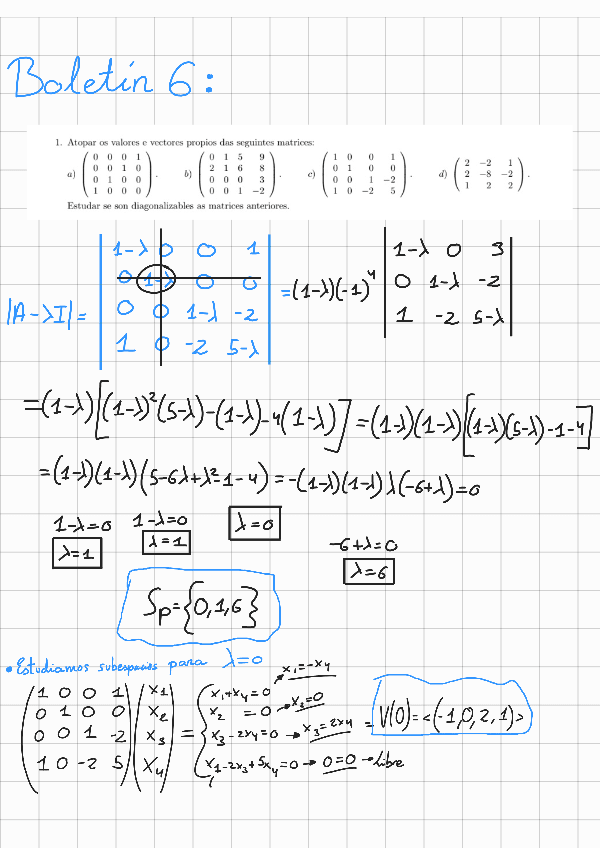 Boletín 6:
1. Atopar os valores e vectores propios das seguintes matrices:
a) ( 0 0 0 1 ; 0 0 1 0 ; 0 1 0 0 ; 1 0 0 0 ). b) ( 0 1 5 9 ; 2 1 6 8 ; 0 0 0 3 ; 0 0 1 −2 ). c) ( 1 0 0 1 ; 0 1 0 0 ; 0 0 1 −2 ; 1 0 −2 5 ). d) ( 2 −2 1 ; 2 −8 −2 ; 1 2 2 ).
Estudar se son diagonalizables as matrices anteriores.
|A-λI| = | 1-λ 0 0 1 ; 0 1-λ 0 0 ; 0 0 1-λ -2 ; 1 0 -2 5-λ | = (1-λ)(-1)^4 | 1-λ 0 3 ; 0 1-λ -2 ; 1 -2 5-λ |
=(1-λ)[(1-λ)²(5-λ)-(1-λ)-4(1-λ)] = (1-λ)(1-λ)[(1-λ)(5-λ)-1-4]
=(1-λ)(1-λ)(5-6λ+λ²-1-4) = -(1-λ)(1-λ)λ(-6+λ)=0
1-λ=0 1-λ=0 λ=0
λ=1 λ=1 -6+λ=0
λ=6
Sp={0,1,6}
• Estudiamos subespacios para λ=0
( 1 0 0 1 ; 0 1 0 0 ; 0 0 1 -2 ; 1 0 -2 5 ) ( x1 ; x2 ; x3 ; x4 ) = { x1+x4=0 → x1=-x4
x2 =0 → x2=0
x3-2x4=0 → x3=2x4
x1-2x3+5x4=0 → 0=0 → libre
= V(0)=<(-1,0,2,1)>